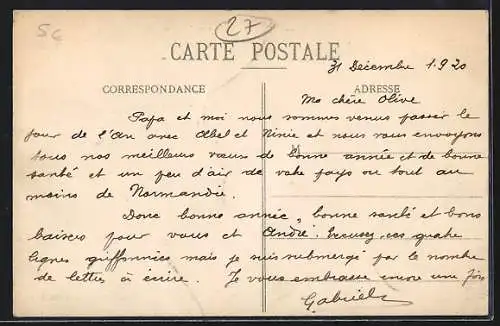 5c
27
CARTE POSTALE
31 Décembre 1920
CORRESPONDANCE
ADRESSE
Ma chère Olive
Papa et moi nous sommes venus passer le
jour de l'An avec Abel et Ninie et nous vous envoyons
tous nos meilleurs vœux de bonne année et de bonne
santé et un peu d'air de votre pays ou tout au
moins de Normandie.
Donc bonne année, bonne santé et bons
baisers pour vous et André. Excusez ces quatre
lignes griffonnées mais je suis submergé par le nombre
de lettres à écrire. Je vous embrasse encore une fois
Gabriel